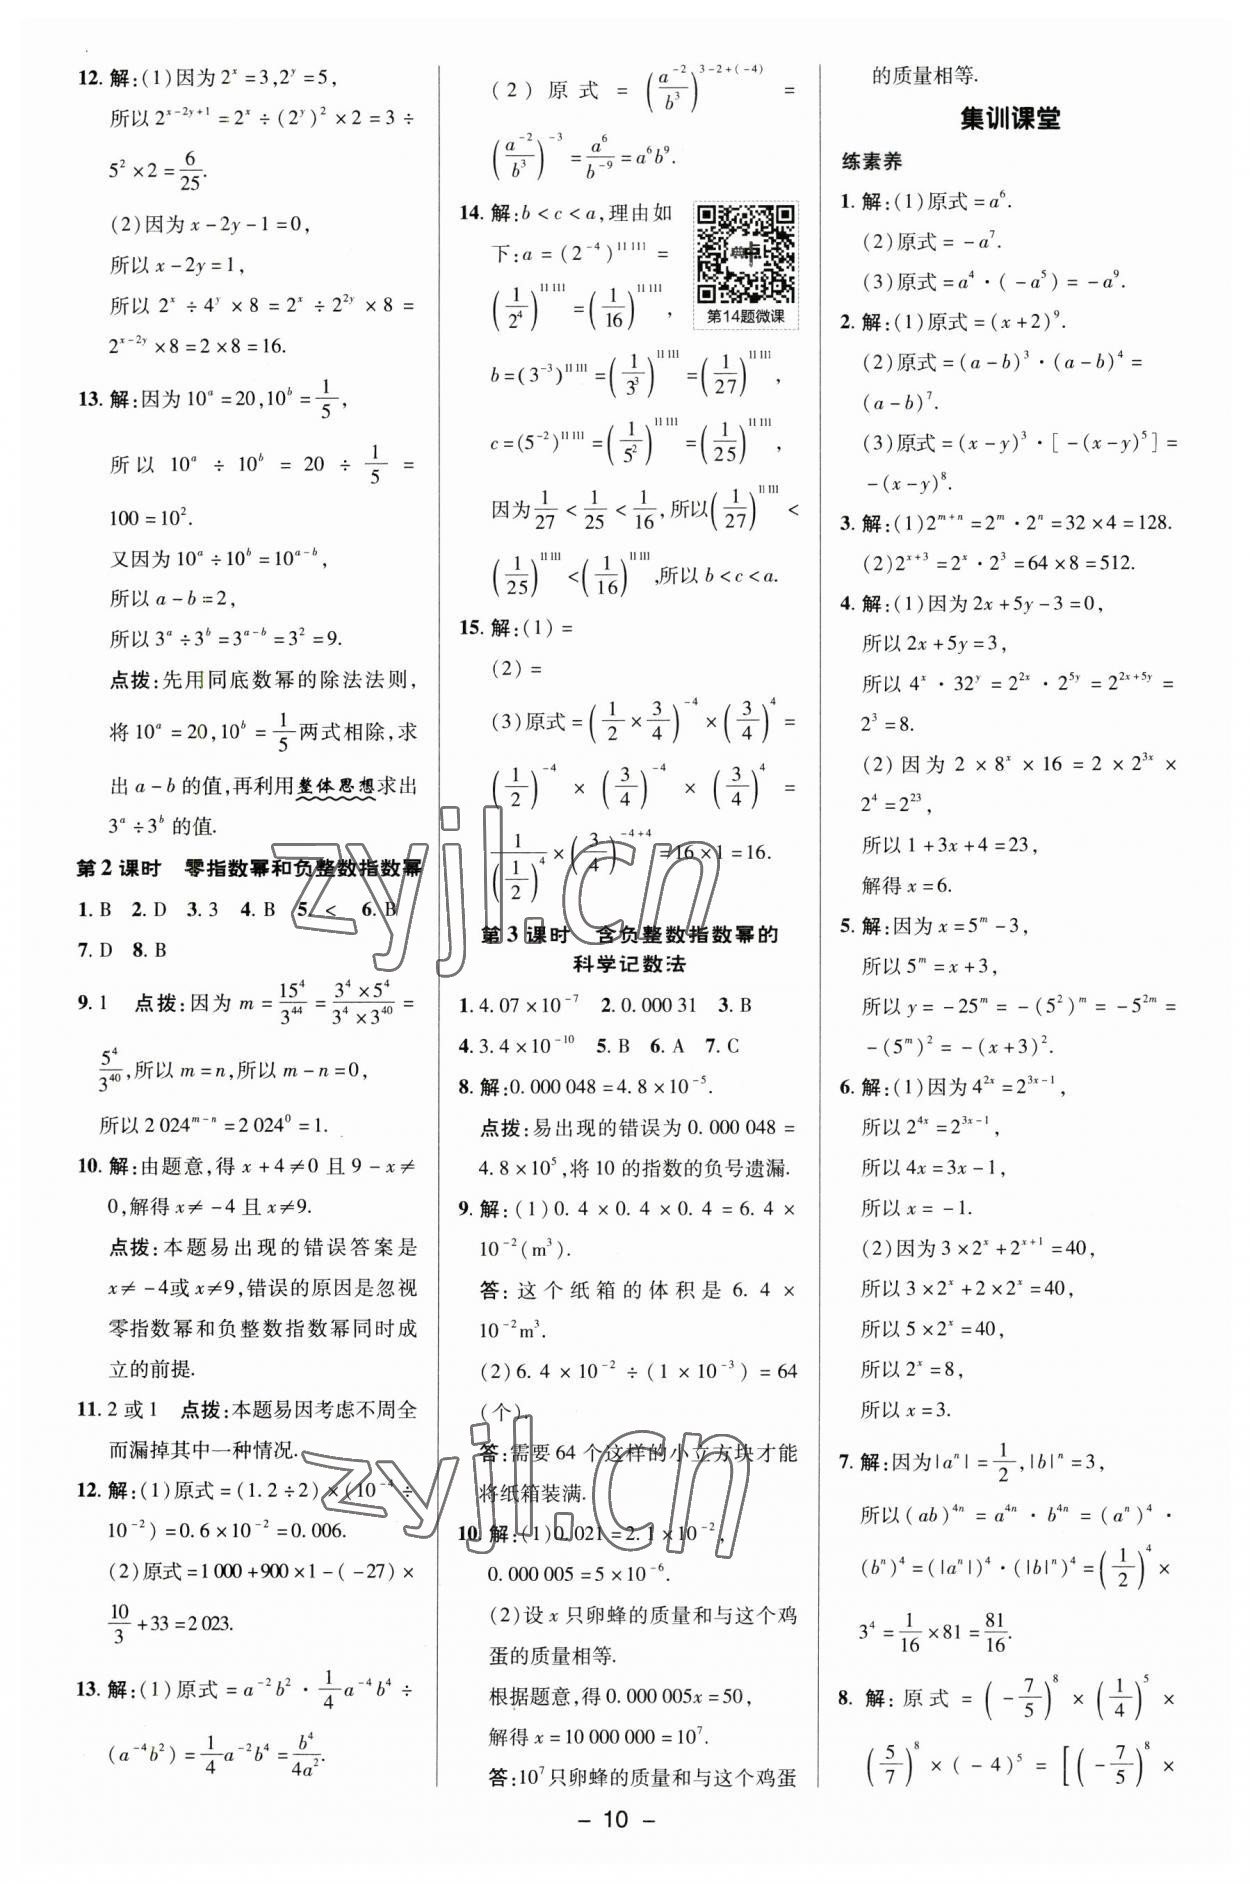 12. 解:(1)因为 2^x = 3, 2^y = 5,
所以 2^{x-2y+1} = 2^x ÷ (2^y)^2 × 2 = 3 ÷
5^2 × 2 = 6/25.
(2)因为 x - 2y - 1 = 0,
所以 x - 2y = 1,
所以 2^x ÷ 4^y × 8 = 2^x ÷ 2^{2y} × 8 =
2^{x-2y} × 8 = 2 × 8 = 16.
13. 解:因为 10^a = 20, 10^b = 1/5,
所以 10^a ÷ 10^b = 20 ÷ 1/5 =
100 = 10^2.
又因为 10^a ÷ 10^b = 10^{a-b},
所以 a - b = 2,
所以 3^a ÷ 3^b = 3^{a-b} = 3^2 = 9.
点拨:先用同底数幂的除法法则,
将 10^a = 20, 10^b = 1/5 两式相除,求
出 a - b 的值,再利用整体思想求出
3^a ÷ 3^b 的值.
第 2 课时 零指数幂和负整数指数幂
1. B 2. D 3. 3 4. B 5. < 6. B
7. D 8. B
9. 1 点拨:因为 m = 15^4/3^{44} = (3^4 × 5^4)/(3^4 × 3^{40}) =
5^4/3^{40},所以 m = n,所以 m - n = 0,
所以 2 024^{m-n} = 2 024^0 = 1.
10. 解:由题意,得 x + 4 ≠ 0 且 9 - x ≠
0,解得 x ≠ -4 且 x ≠ 9.
点拨:本题易出现的错误答案是
x ≠ -4或 x ≠ 9,错误的原因是忽视
零指数幂和负整数指数幂同时成
立的前提.
11. 2 或 1 点拨:本题易因考虑不周全
而漏掉其中一种情况.
12. 解:(1)原式 = (1.2 ÷ 2) × (10^{-4} ÷
10^{-2}) = 0.6 × 10^{-2} = 0.006.
(2)原式 = 1 000 + 900 × 1 - (-27) ×
10/3 + 33 = 2 023.
13. 解:(1)原式 = a^{-2}b^2 · 1/4 a^{-4}b^4 ÷
(a^{-4}b^2) = 1/4 a^{-2}b^4 = b^4/4a^2.
(2)原式 = (a^{-2}/b^3)^{3-2+(-4)} =
(a^{-2}/b^3)^{-3} = a^6/b^{-9} = a^6b^9.
14. 解:b < c < a,理由如
下:a = (2^{-4})^{11 111} =
(1/2^4)^{11 111} = (1/16)^{11 111},
第14题微课
b = (3^{-3})^{11 111} = (1/3^3)^{11 111} = (1/27)^{11 111},
c = (5^{-2})^{11 111} = (1/5^2)^{11 111} = (1/25)^{11 111},
因为 1/27 < 1/25 < 1/16,所以 (1/27)^{11 111} <
(1/25)^{11 111} < (1/16)^{11 111},所以 b < c < a.
15. 解:(1) =
(2) =
(3)原式 = (1/2 × 3/4)^{-4} × (3/4)^4 =
(1/2)^{-4} × (3/4)^{-4} × (3/4)^4 =
1/(1/2)^4 × (3/4)^{-4+4} = 16 × 1 = 16.
第 3 课时 含负整数指数幂的
科学记数法
1. 4.07 × 10^{-7} 2. 0.000 31 3. B
4. 3.4 × 10^{-10} 5. B 6. A 7. C
8. 解:0.000 048 = 4.8 × 10^{-5}.
点拨:易出现的错误为 0.000 048 =
4.8 × 10^5,将 10 的指数的负号遗漏.
9. 解:(1)0.4 × 0.4 × 0.4 = 6.4 ×
10^{-2}(m^3).
答:这个纸箱的体积是 6.4 ×
10^{-2}m^3.
(2)6.4 × 10^{-2} ÷ (1 × 10^{-3}) = 64
(个).
答:需要 64 个这样的小立方块才能
将纸箱装满.
10. 解:(1)0.021 = 2.1 × 10^{-2},
0.000 005 = 5 × 10^{-6}.
(2)设 x 只卵蜂的质量和与这个鸡
蛋的质量相等.
根据题意,得 0.000 005x = 50,
解得 x = 10 000 000 = 10^7.
答:10^7 只卵蜂的质量和与这个鸡蛋
的质量相等.
集训课堂
练素养
1. 解:(1)原式 = a^6.
(2)原式 = -a^7.
(3)原式 = a^4 · (-a^5) = -a^9.
2. 解:(1)原式 = (x+2)^9.
(2)原式 = (a-b)^3 · (a-b)^4 =
(a-b)^7.
(3)原式 = (x-y)^3 · [-(x-y)^5] =
-(x-y)^8.
3. 解:(1)2^{m+n} = 2^m · 2^n = 32 × 4 = 128.
(2)2^{x+3} = 2^x · 2^3 = 64 × 8 = 512.
4. 解:(1)因为 2x + 5y - 3 = 0,
所以 2x + 5y = 3,
所以 4^x · 32^y = 2^{2x} · 2^{5y} = 2^{2x+5y} =
2^3 = 8.
(2)因为 2 × 8^x × 16 = 2 × 2^{3x} ×
2^4 = 2^{23},
所以 1 + 3x + 4 = 23,
解得 x = 6.
5. 解:因为 x = 5^m - 3,
所以 5^m = x + 3,
所以 y = -25^m = -(5^2)^m = -5^{2m} =
-(5^m)^2 = -(x+3)^2.
6. 解:(1)因为 4^{2x} = 2^{3x-1},
所以 2^{4x} = 2^{3x-1},
所以 4x = 3x - 1,
所以 x = -1.
(2)因为 3 × 2^x + 2^{x+1} = 40,
所以 3 × 2^x + 2 × 2^x = 40,
所以 5 × 2^x = 40,
所以 2^x = 8,
所以 x = 3.
7. 解:因为 |a^n| = 1/2, |b|^n = 3,
所以 (ab)^{4n} = a^{4n} · b^{4n} = (a^n)^4 ·
(b^n)^4 = (|a^n|)^4 · (|b|^n)^4 = (1/2)^4 ×
3^4 = 1/16 × 81 = 81/16.
8. 解:原式 = (-7/5)^8 × (1/4)^5 ×
(5/7)^8 × (-4)^5 = [(-7/5)^8 ×
- 10 -
zyjl.cn
zyjl.cn